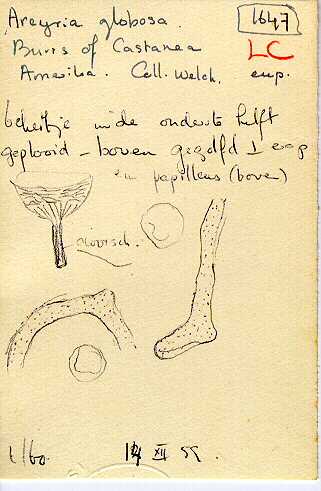 Arcyria globosa.
1647
Burrs of Castanea
LC
Amerika. Coll. Welch. eup.
bekertje in de onderste helft
geplooid - boven gegolfd ⊥ eup
en papilleus (boven)
14 XII 55.